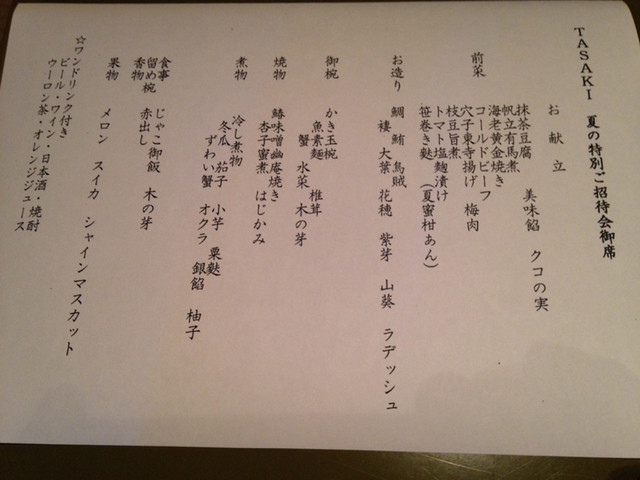 TASAKI 夏の特別ご招待会御席
お献立
前菜
抹茶豆腐 美味餡 クコの実
帆立有馬煮
海老黄金焼き
コールドビーフ
穴子東寺揚げ 梅肉
枝豆旨煮
トマト塩麹漬け
笹巻き麩 (夏蜜柑あん)
お造り
鯛 鮪 烏賊
褄 大葉 花穂 紫芽 山葵 ラデッシュ
御椀
かき玉椀
魚素麺 椎茸
蟹 水菜 木の芽
焼物
鰆味噌幽庵焼き
杏子蜜煮 はじかみ
煮物
冷し煮物
冬瓜 茄子 小芋 粟麩
ずわい蟹 オクラ 銀餡 柚子
食事 じゃこ御飯 木の芽
留め椀 赤出し
香物
果物 メロン スイカ シャインマスカット
☆ワンドリンク付き
ビール・ワイン・日本酒・焼酎
ウーロン茶・オレンジジュース